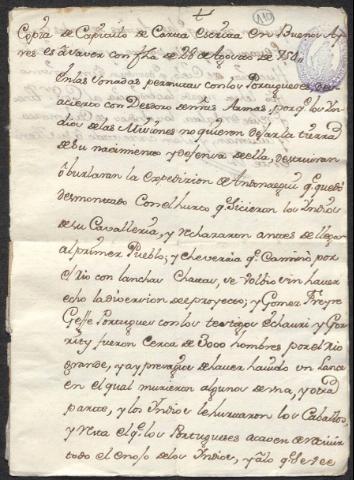 Copia de Capitulo de Carta Escrita en Buenos Ay
res es à saver con fha de 28 de Agosto de 754.
En las sonadas permutas con los Portugueses, des
acierto con Desdoro de ntras Armas, por qe los Yn
dios de las Misiones no quieren dejar la tierra
de su nacimiento y defensa de ella, destruieron
ò burlaron la expedicion de Andonaegui qe quedò
desmontado con el hurto qe hicieron los Yndios
de su Cavalleria, y rechazaron antes de llegar
al primer Pueblo; y cheverria qe Caminò por
el Rio con lanchas chatas, se volbio sin haver
echo la diversion de proyecto; y Gomez Freyre
Geffe Portugues con los testigos Echauri y Ga
rity fueron cerca de 3000 hombres por el Rio
grande, y ay presumpos de haver havido un Lance
en el qual murieron algunos de una, y otra
parte, y los Yndios le hurtaron los Caballos,
y resta el qe los Portugueses acaven de
todo el enojo de los Yndios, y